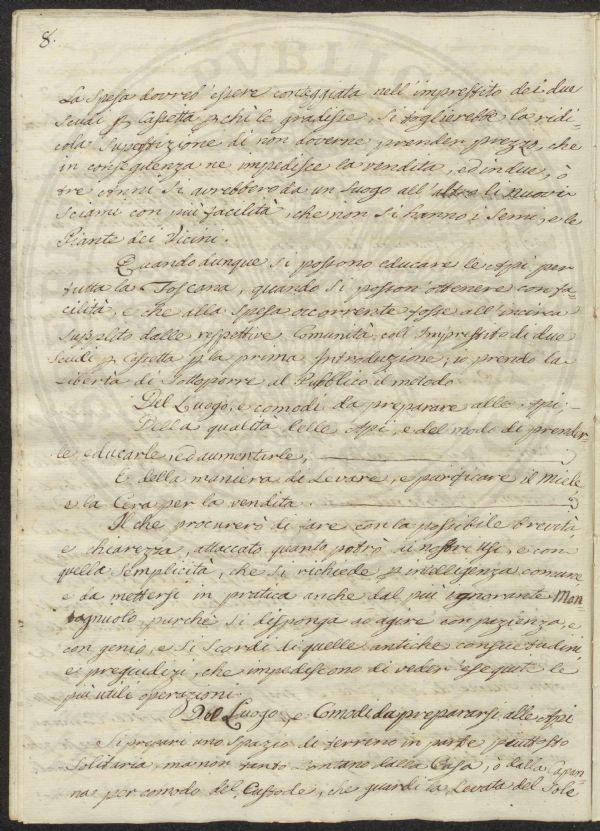 8.
La spesa dovreb'essere conteggiata nell'imprestito dei due
Scudi p Cassetta p chi le gradisse, si toglierebbe la ridi¬
cola superstizione di non doverne prender prezzo, che
in conseguenza ne impedisce la vendita, ed in due, ò
tre Anni si avrebbero da un luogo all'altro li nuovi
Sciami con più facilità, che non si hanno i semi, e le
Piante dei Vicini.
Quando dunque si possono educare le Api per
tutta la Toscana, quando si posson'ottenere con fa¬
cilità, e che alla spesa occorrente fosse all'incirca
supplito dalle respettive Comunità coll'Imprestito di due
Scudi p Cassetta p la prima Introduzione, io prendo la
libertà di sottoporre al Pubblico il metodo
Del Luogo, e comodi da preparare alle Api:
Della qualità delle Api, e del modo di prender¬
le educarle, ed aumentarle,
E della maniera di Levare, e purificare il Miele
e la Cera per la vendita
Il che procurerò di fare con la possibile brevità,
e chiarezza, attaccato quanto potrò ai nostri usi, e con
quella semplicità, che si richiede p intelligenza comune
e da mettersi in pratica anche dal più ignorante Mon¬
tagnuolo, purchè si disponga ad agire con pazienza, e
con genio, e si scordi di quelle antiche consuetudini
e pregiudizi, che impediscono di veder eseguite le
più utili operazioni.
Del Luogo, e Comodi da prepararsi alle Api
Si prepari uno spazio di terreno in parte piuttosto
Solitaria, ma non tanto lontano dalla Casa, ò dalla Capan¬
na per comodo del Custode, che guardi la Levata del Sole
PVBLI